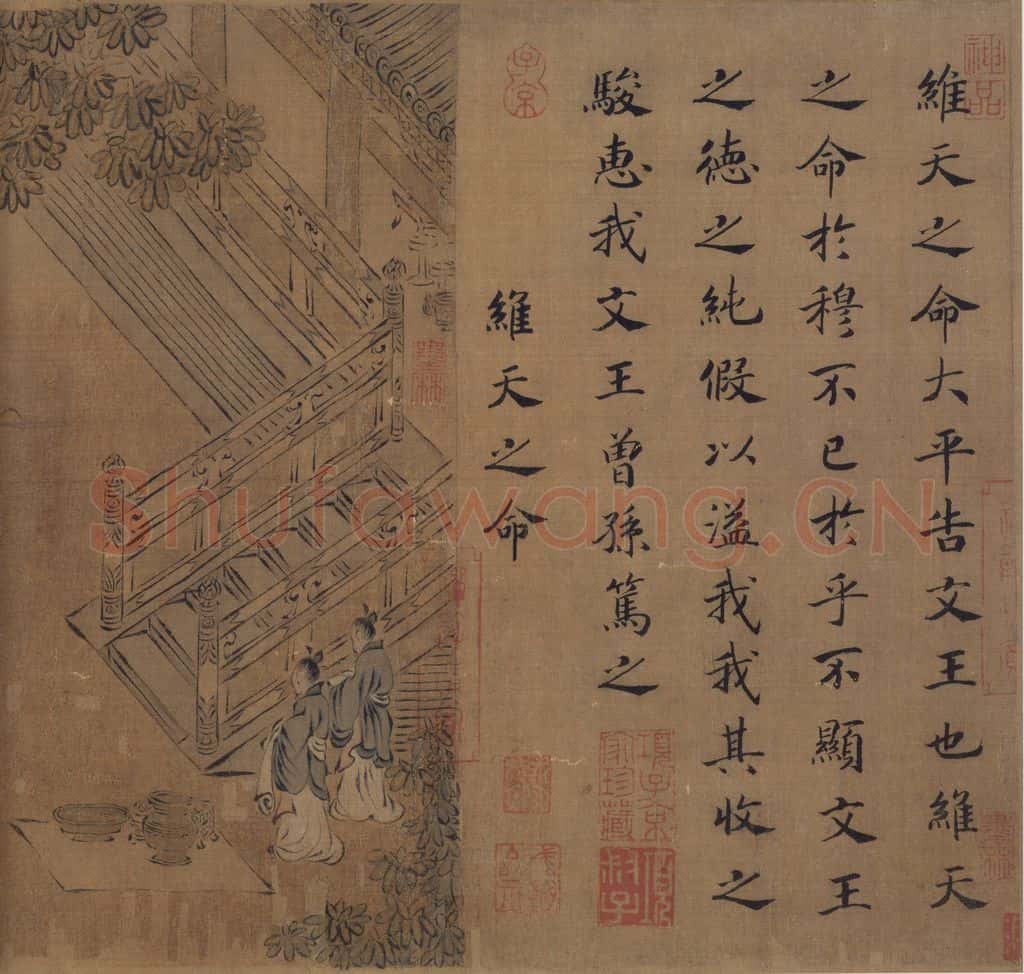 維天之命大平告文王也維天
之命於穆不已於乎不顯文王
之德之純假以溢我我其收之
駿惠我文王曾孫篤之
維天之命
神品
子京
項子京
家珍藏
Shufawang.CN